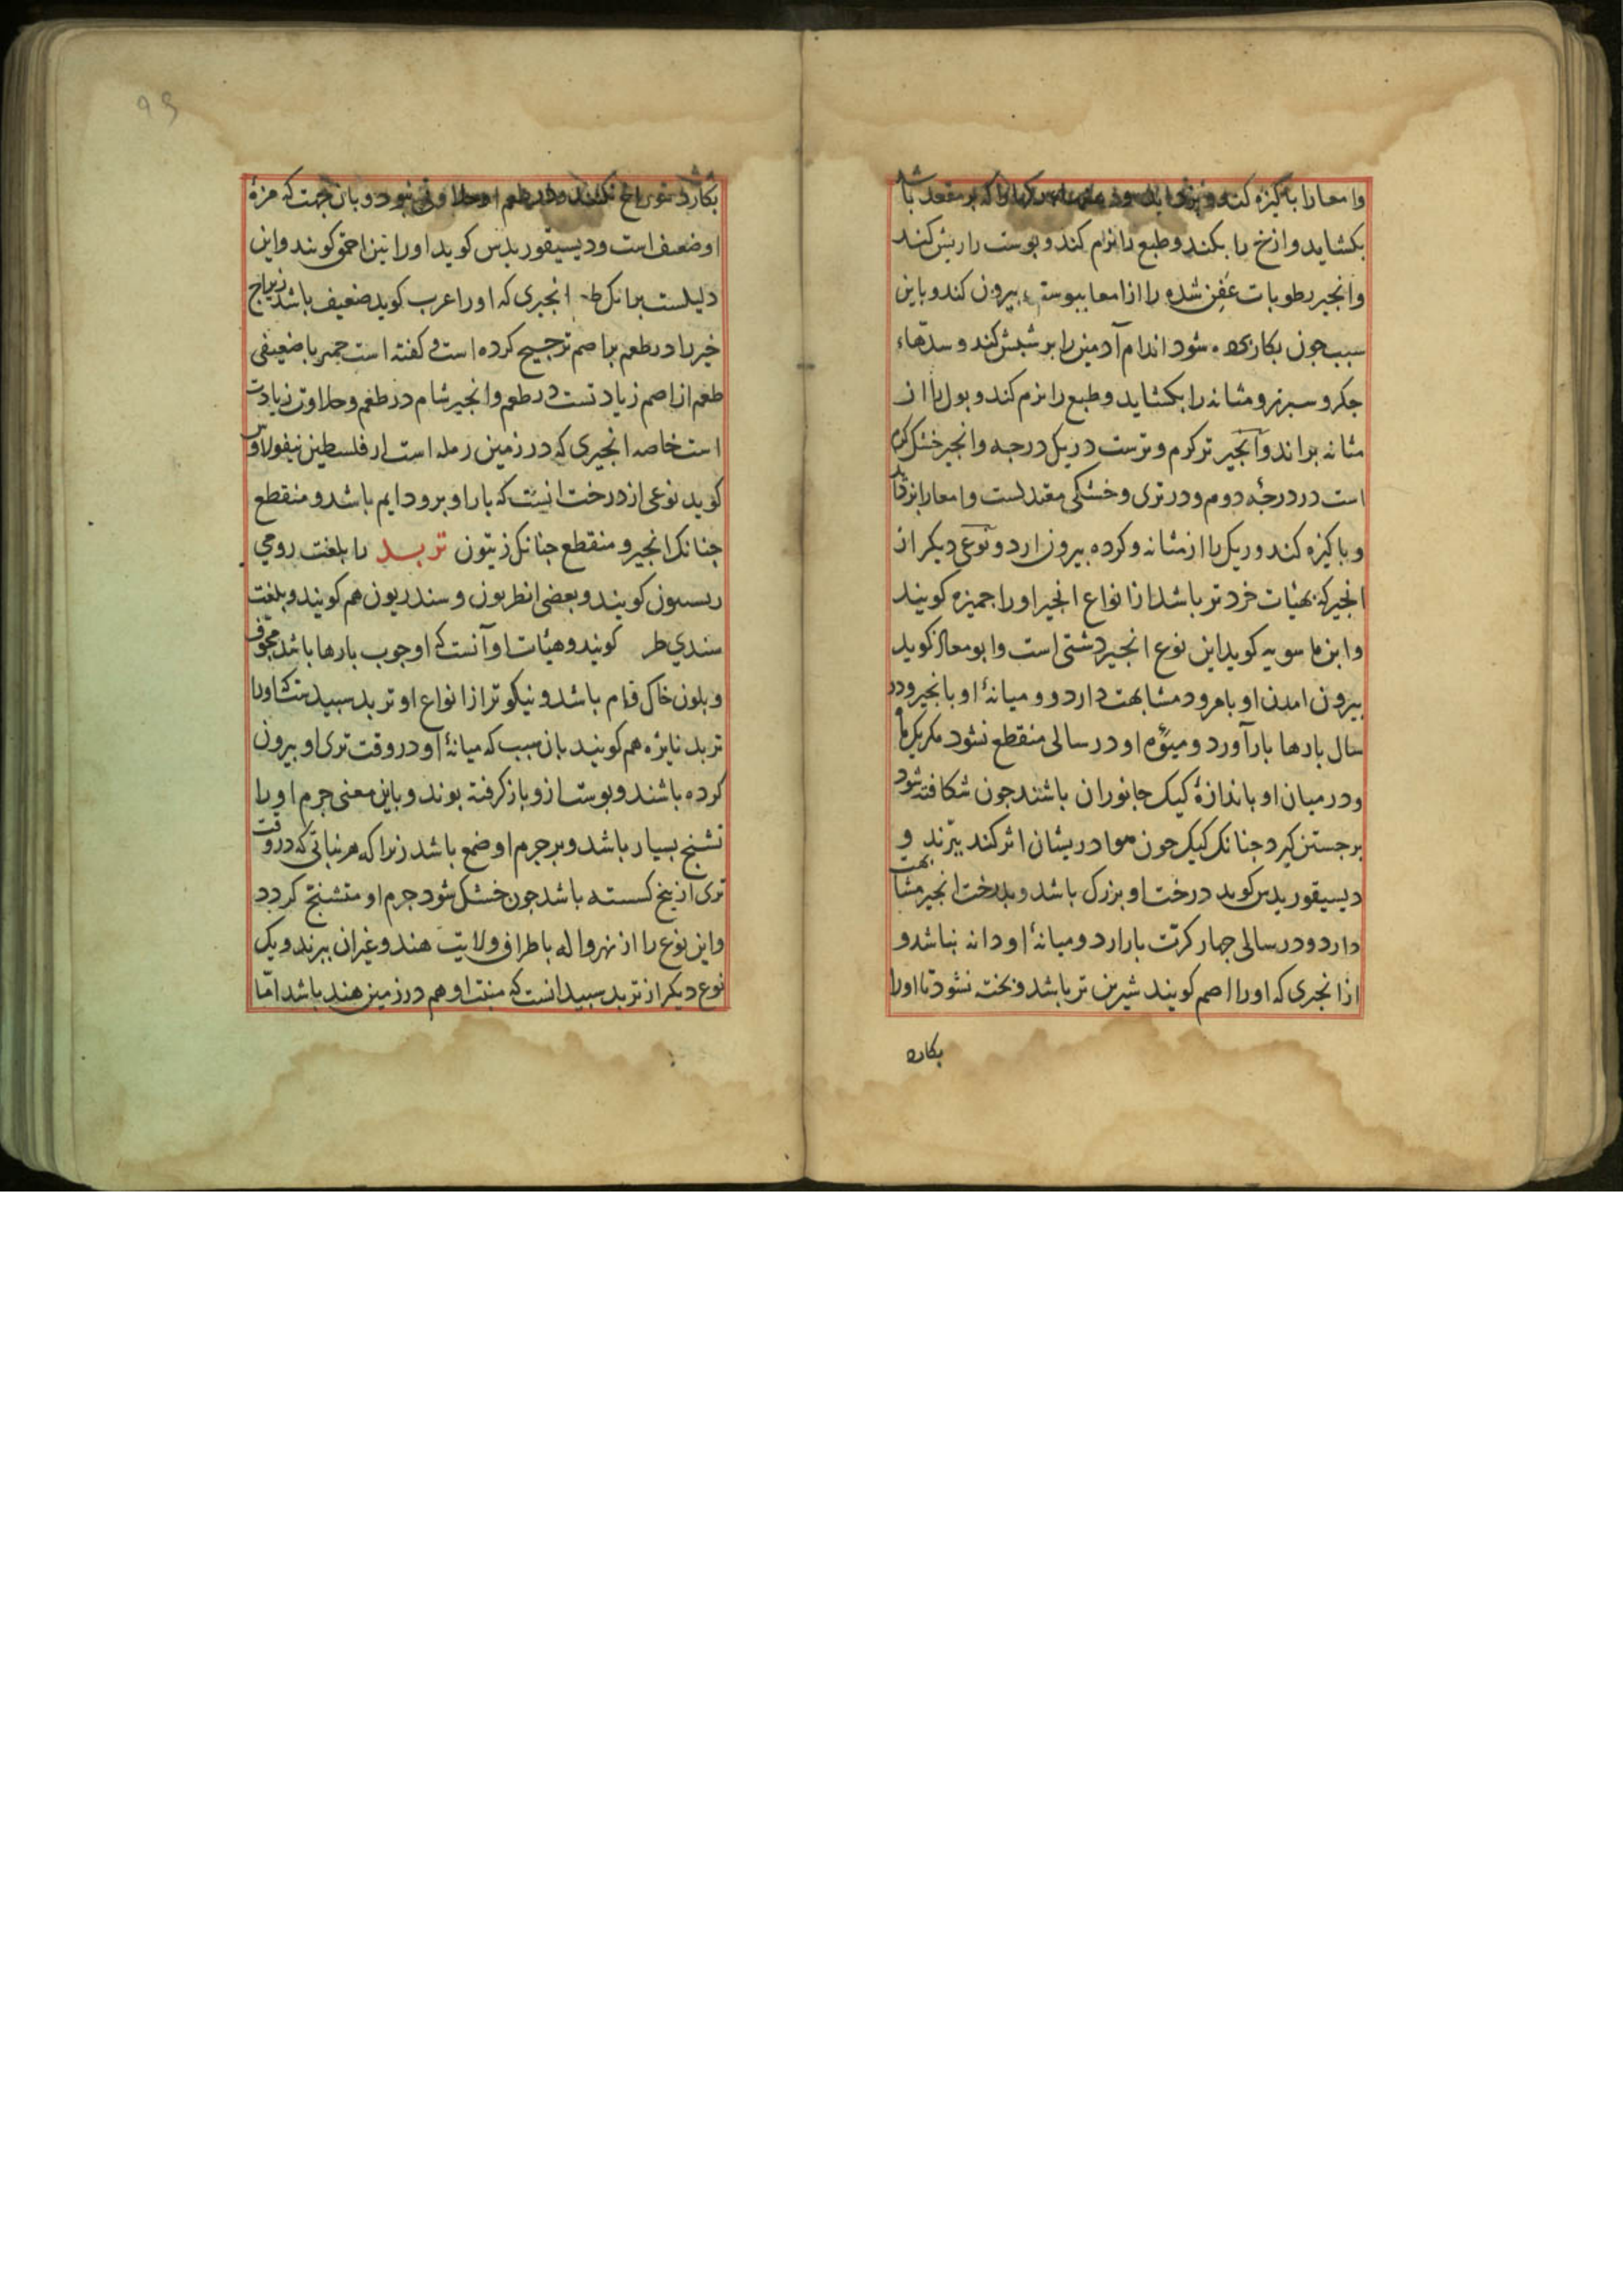 وامعارا باکیزه کند و
بکشاید وازخ را بکند وطبع را نرم کند و بوست را ریش کند
وانجیر رطوبات عفن شده را از امعا بیوسته بیرون کند و باین
سبب جون بکار شود اندام آدمی را بر شبش کند و سدّهاء
جکر و سبرز و مثانه را بکشاید و طبع را نرم کند و بول را از
مثانه براند و انجیر تر کرم و ترست در یک درجه و انجیر خشک کرم
است در درجهٔ دوم و در تری و خشکی معتدلست و امعا را
و باکیزه کند و ریک را از مثانه و کرده بیرون ارد و نوعی دیکر از
انجیر که بهیات خردتر باشد از انواع انجیر اورا جمیزه کویند
و ابن ماسویه کوید این نوع انجیر دشتی است و ابو معاذ کوید
بیرون امدن او بامرود مشابهت دارد و میانهٔ او بانجیر و در
سال بارها بار آورد و میوهٔ او در سالی منقطع نشود مکر یک ماه
و در میان او باندازهٔ کیک جانوران باشند جون شکافته شود
برجستن کیرد جنانک کیک جون هوا دریشان اثر کند ببرند و
دیسیقوریدس کوید درخت او بزرک باشد و بدرخت انجیر مشابهت
دارد و در سالی جهار کرّت بار ارد و میانهٔ او دانه نباشد و
از انجیری که اورا اصم کویند شیرین تر باشد و بخته نشود تا اورا
بکارد
بکارد سوراخ نکنند و در طعم او حلاوتی نبود و بان جهت که مزهٔ
او ضعیف است و دیسیقوریدس کوید اورا تین احمق کویند و این
دلیلست بر انک انجیری که اورا عرب کوید ضعیف باشد
را در طعم بر اصم ترجیح کرده است و کفته است جمیز با ضعیفی
طعم از اصم زیادتست در طعم و انجیر شام در طعم و حلاوت زیادت
است خاصه انجیری که در زمین رمله است از فلسطین نیقولاوس
کوید نوعی از درخت انست که بار او برو دایم باشد و منقطع
جنانک انجیر و منقطع جنانک زیتون تربد را بلغت رومی
کویند و بعضی انطریون و سندریون هم کویند و بلغت
سندی طر کویند و هیات او آنست که او جوب بارها باشد مجوّف
و بلون خاک فام باشد و نیکوتر از انواع او تربد سبید است که اورا
تربد نایزه هم کویند بان سبب که میانهٔ او در وقت تری او بیرون
کرده باشند و بوست ازو باز کرفته بوند و باین معنی جرم اورا
تشنج بسیار باشد و بر جرم او ضمغ باشد زیرا که هر نباتی که در وقت
تری از بیخ کسسته باشد جون خشک شود جرم او متشنج کردد
و این نوع را از نهرواله باطراف ولایت هند و غیر ان برند و یک
نوع دیکر از تربد سبید انست که منبت او هم در زمین هند باشد امّا